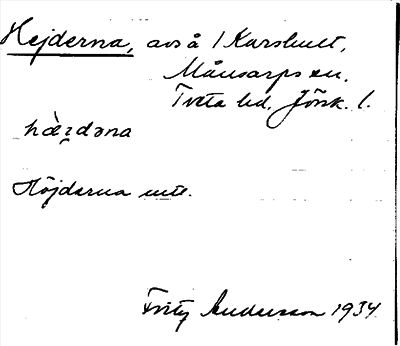 Hejderna, avs å 1 Karshult,
Månsarps sn.
Tveta hd. Jönk. l.
hæ̀ɪdəna
Höjderna utt.
Fritz Andersson 1934